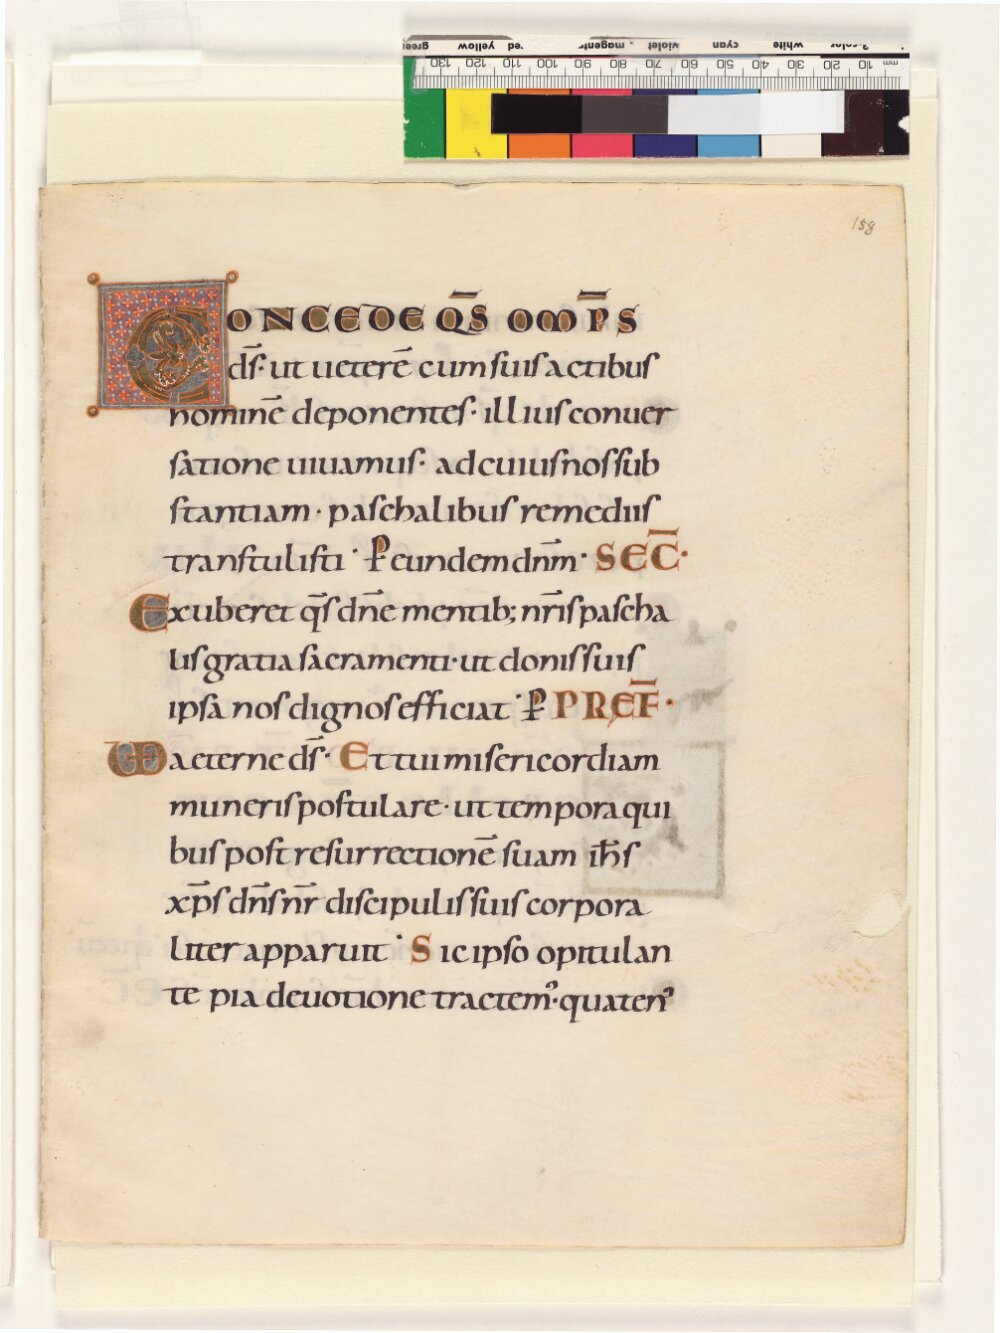 green yellow red magenta violet cyan white 3-color
130 120 110 100 90 80 70 60 50 40 30 20 10 mm
158
CONCEDE QS̄ OMP̄S
ds̄· ut ueterē cum suis actibus
hominē deponentes· illius conuer
satione uiuamus· ad cuius nos sub
stantiam· paschalibus remediis
transtulisti· P eundem dn̄m· SEC̄·
Exuberet qs̄ dn̄e mentib; nr̄is pascha
lis gratia sacramenti· ut donis suis
ipsa nos dignos efficiat· P PREF̄·
VD aeterne ds̄· Et tui misericordiam
muneris postulare· ut tempora qui
bus post resurrectionē suam ih̄s
xp̄s dn̄s nr̄ discipulis suis corpora
liter apparuit· Sic ipso opitulan
te pia deuotione tractem᾽· quaten᾽